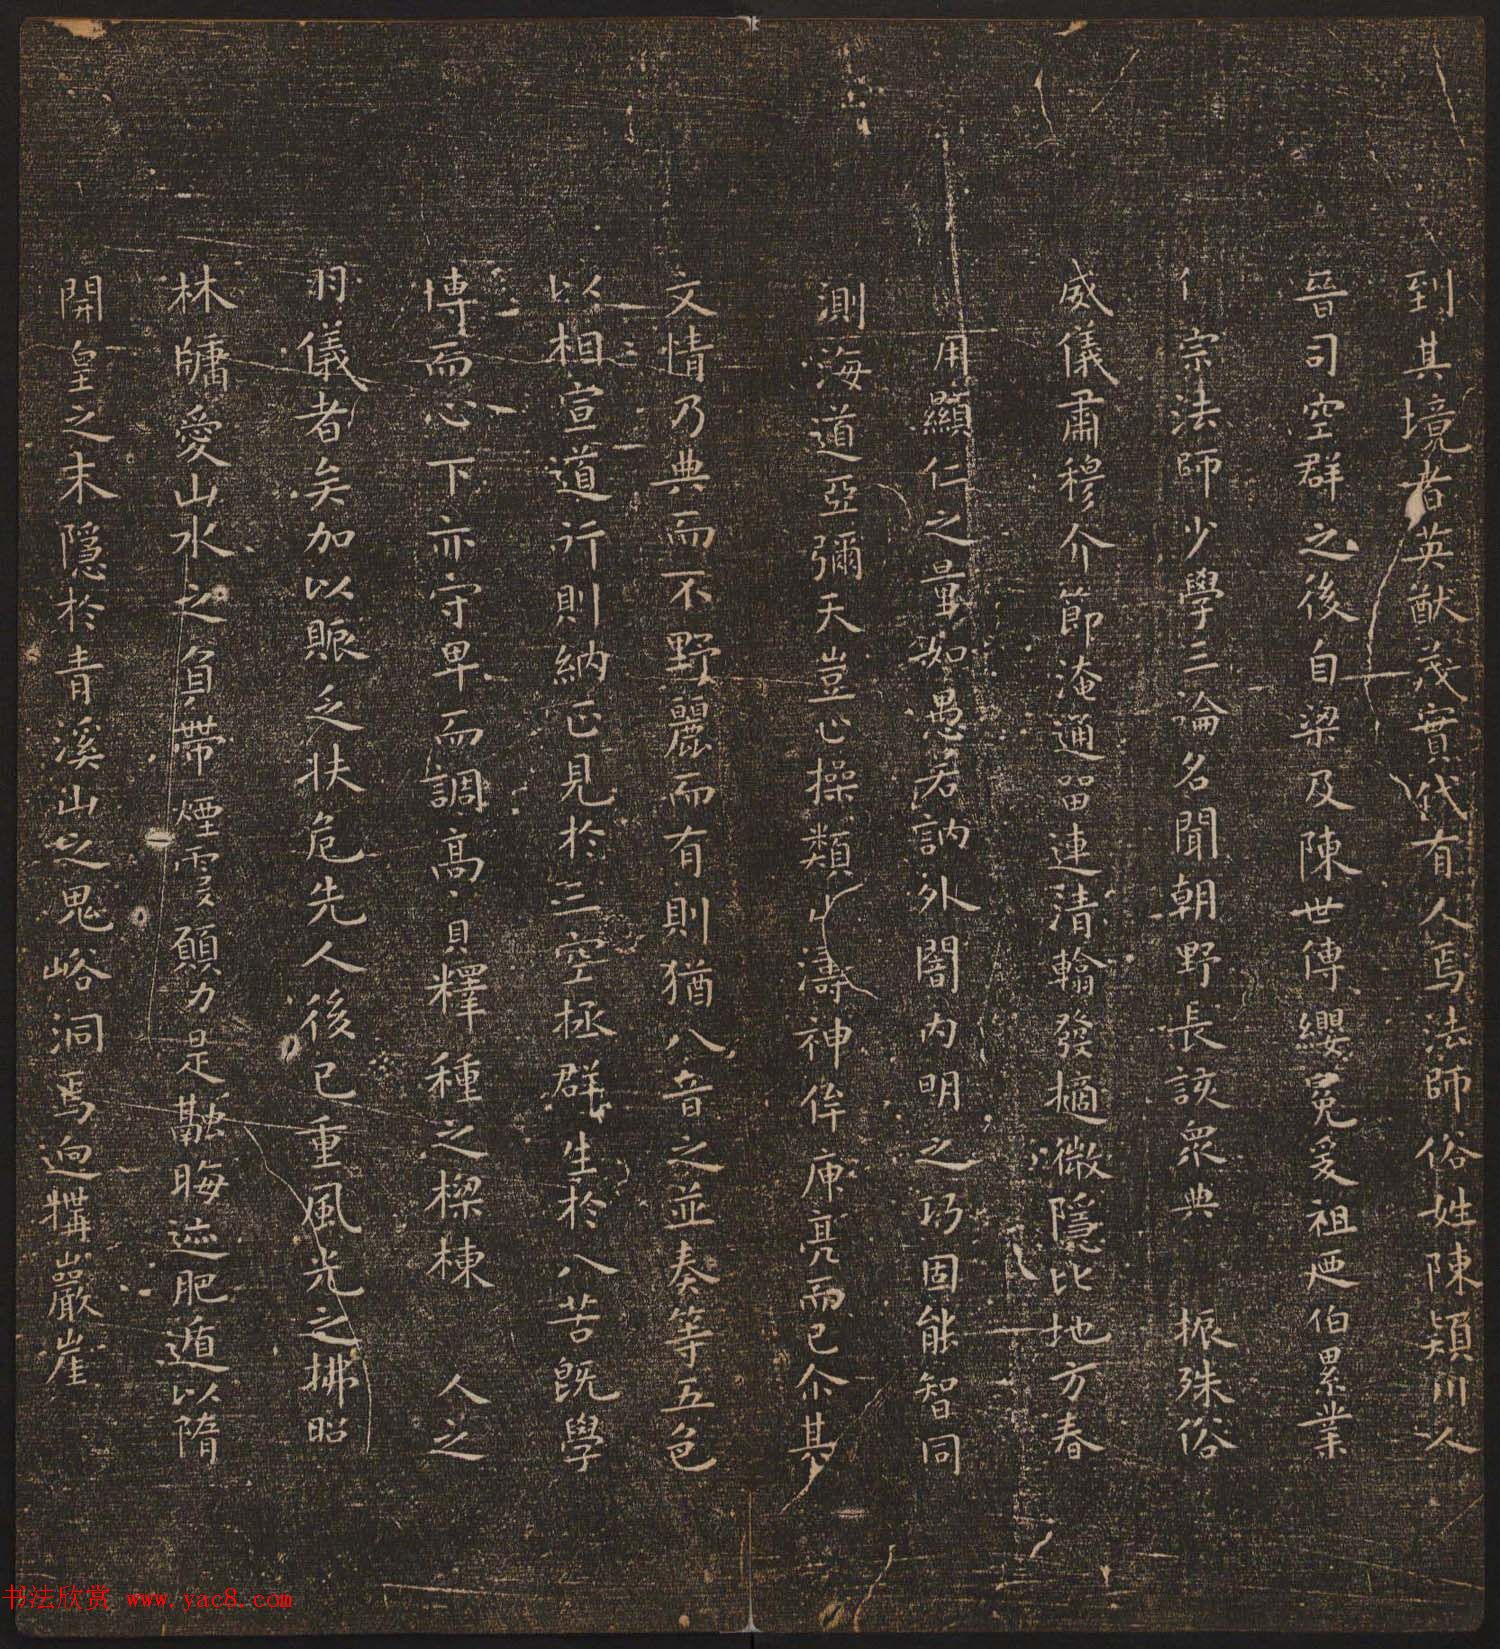 到其境者英猷茂實代有人焉法師俗姓陳潁川人
晉司空群之後自梁及陳世傳纓冕爰祖迺伯累業
宗法師少學三論名聞朝野長該眾典 振殊俗
威儀肅穆介節淹通留連清翰發擿微隱比地方春
用顯仁之量如愚若訥外闇內明之巧固能智同
測海道亞彌天豈止操類山濤神侔庾亮而已介其
文情乃典而不野麗而有則猶八音之並奏等五色
以相宣道行則納正見於三空拯群生於八苦既學
博而心下亦守卑而調高 釋種之樑棟 人之
羽儀者矣加以賑乏扶危先人後已重風光之拂照
林牖愛山水之負帶煙雲願力是融晦迹肥遁以隋
開皇之末隱於青溪山之鬼峪洞焉迥構巖崖
书法欣赏 www.yac8.com